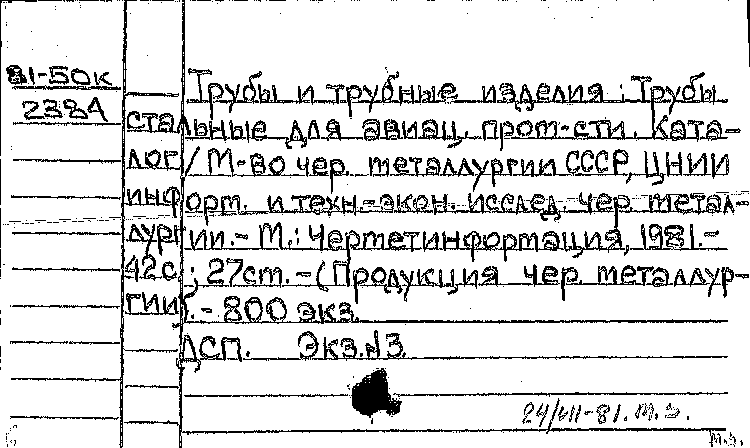 81-50к
2384
Трубы и трубные изделия : Трубы
стальные для авиац. пром-сти. Ката-
лог / М-во чер. металлургии СССР, ЦНИИ
информ. и техн.-экон. исслед. чер. метал-
лургии. - М.: Черметинформация, 1981. -
42с.; 27ст. - (Продукция чер. металлур-
гии). - 800 экз.
ДСП. Экз. №3.
24/VII-81. М.З.
М.З.